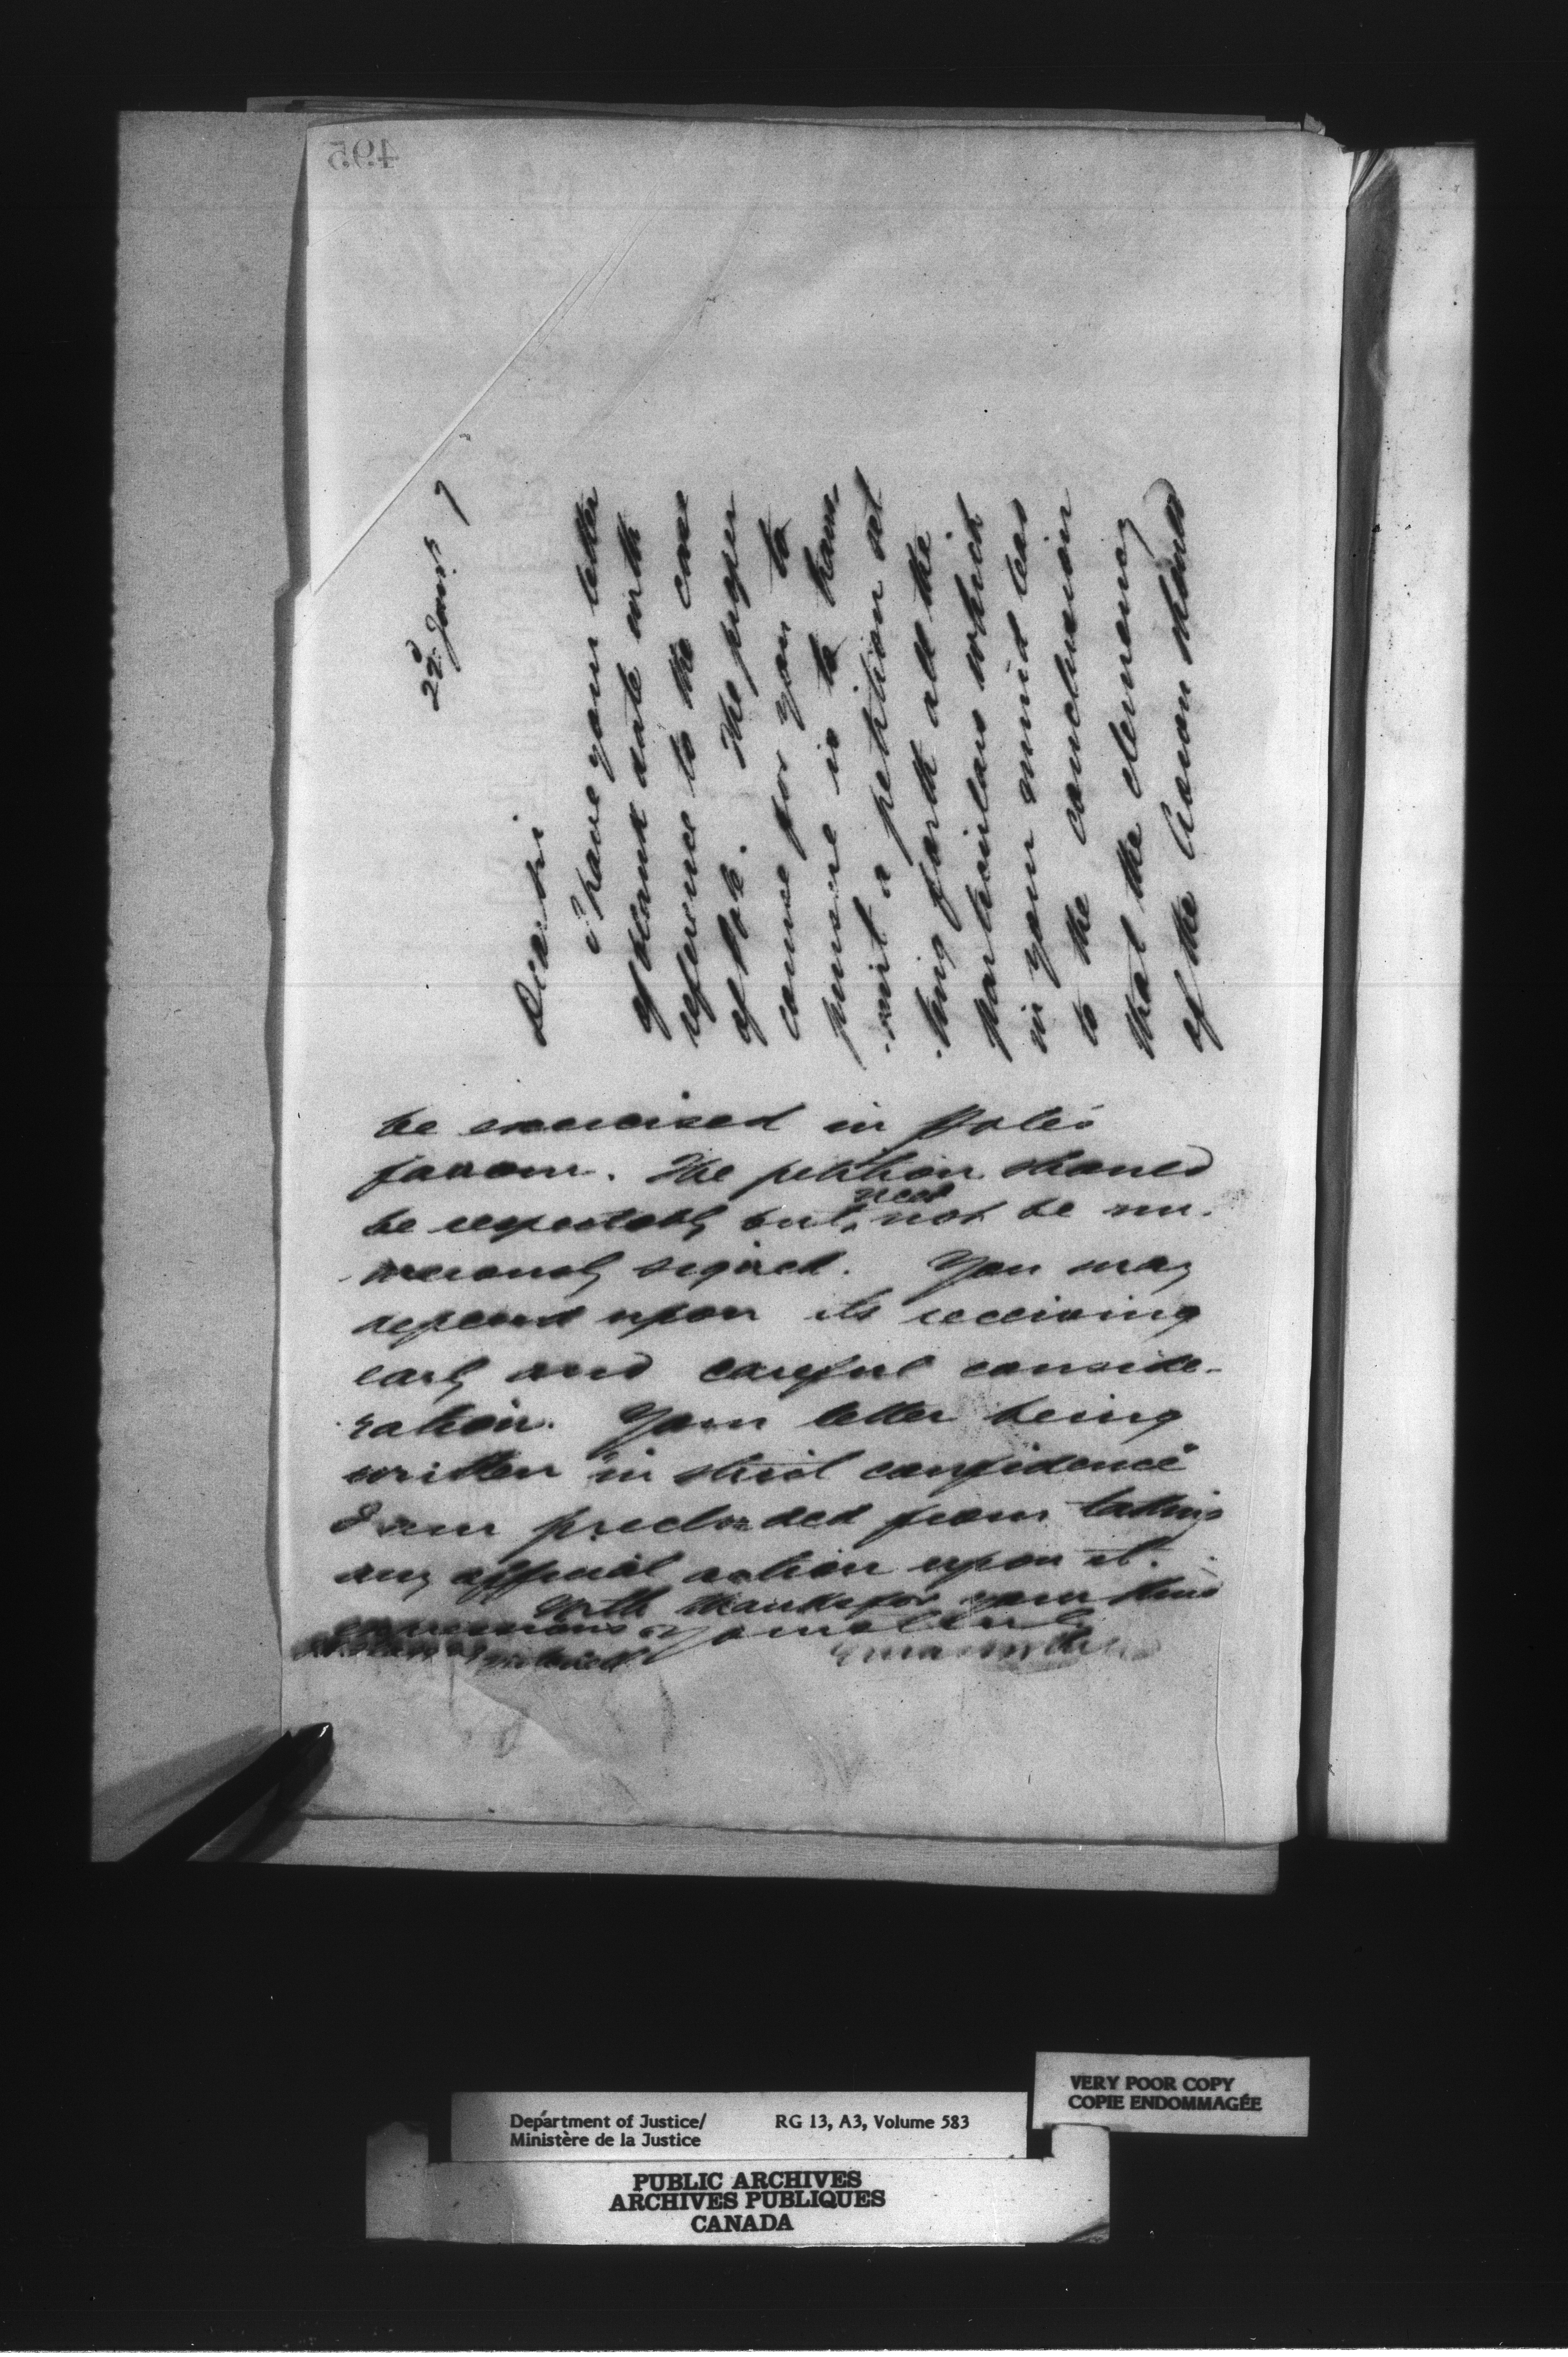 495
22d Jany 7
Dear Sir
I have your letter
of recent date with
reference to the case
of Pole. The proper
course for you to
pursue is to trans-
-mit a petition set
-ting forth all the
particulars which
in your mind lead
to the conclusion
that the clemency
of the Crown should
be exercised in Pole's
favour. The petition should
be respectably but need not be nu-
-merously signed. You may
depend upon its receiving
early and careful conside-
-ration. Your letter being
written in strict confidence
I am precluded from taking
any official action upon it.
With thanks for your kind
expressions
yours truly
Department of Justice/
Ministère de la Justice
RG 13, A3, Volume 583
VERY POOR COPY
COPIE ENDOMMAGÉE
PUBLIC ARCHIVES
ARCHIVES PUBLIQUES
CANADA